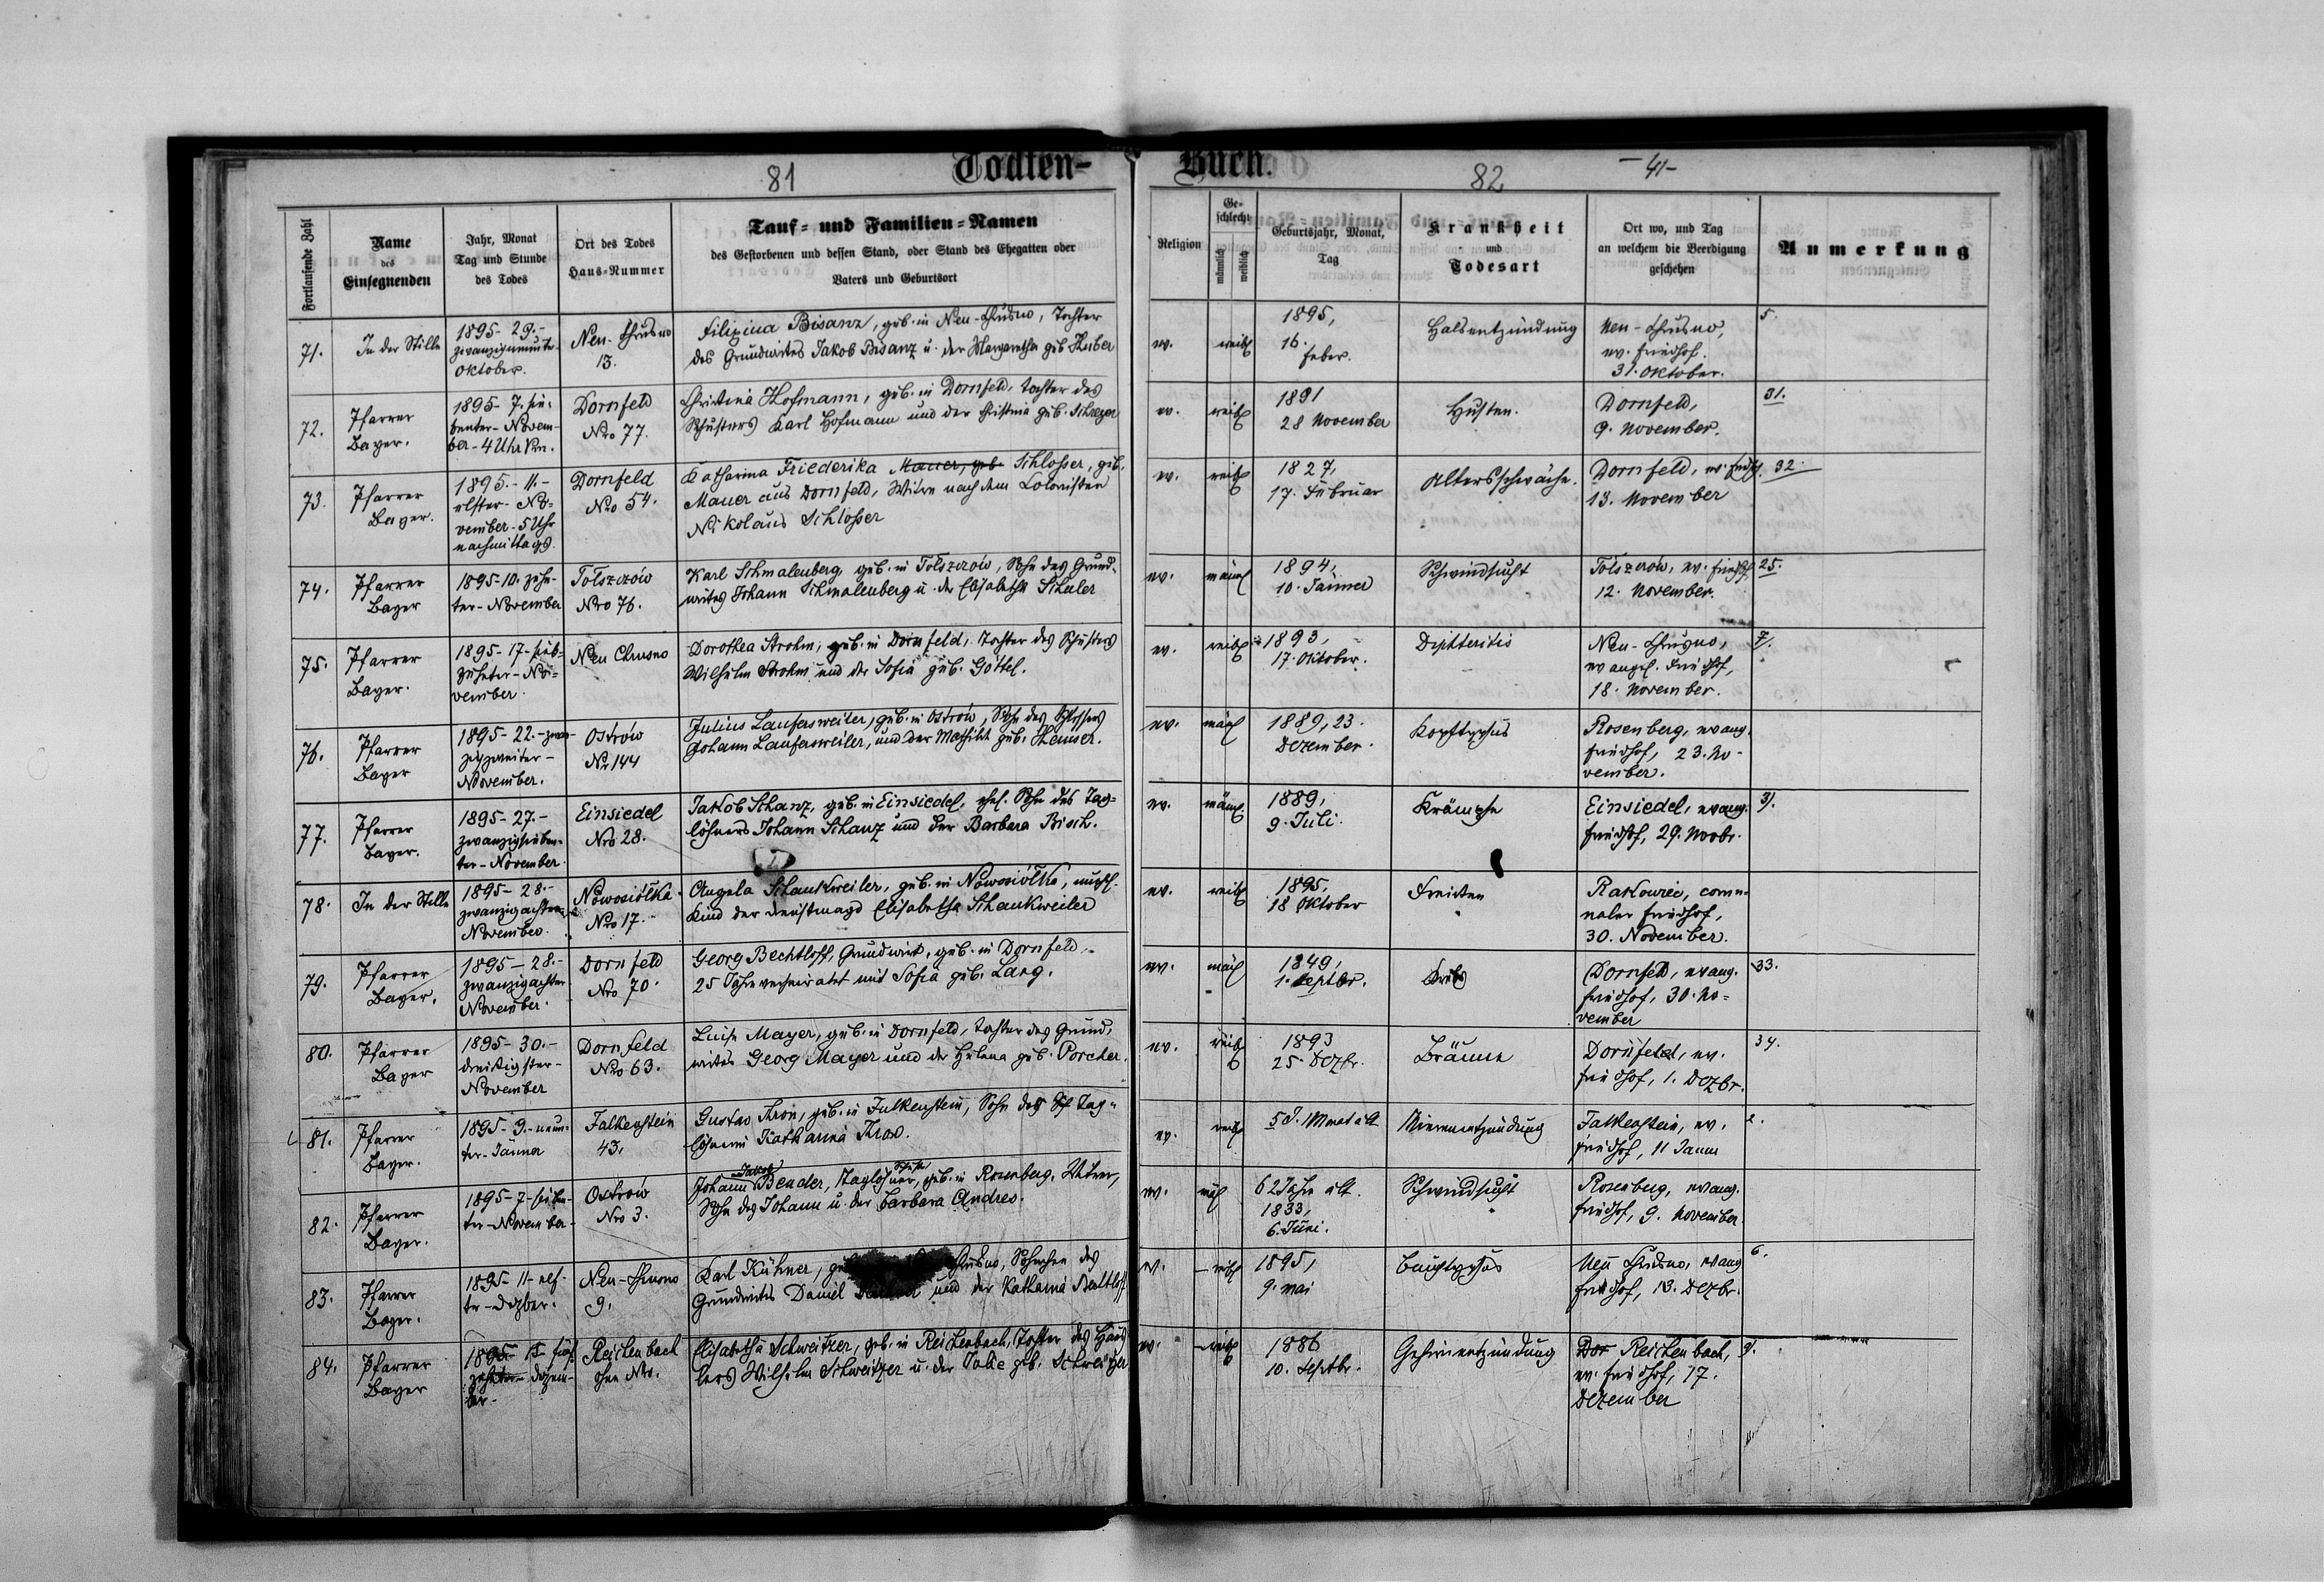 81
Todten-
Buch.
82
-41-
Fortlaufende Zahl
Name
des
Einsegnenden
Jahr, Monat
Tag und Stunde
des Todes
Ort des Todes
Haus-Nummer
Tauf- und Familien-Namen
des Gestorbenen und dessen Stand, oder Stand des Ehegatten oder
Vaters und Geburtsort
Religion
Ge-
schlecht
männlich
weiblich
Geburtsjahr, Monat,
Tag
Krankheit
und
Todesart
Ort wo, und Tag
an welchem die Beerdigung
geschehen
Anmerkung
71.
In der Stille
1895 - 29. -
zwanzigneunter
Oktober.
Neu-Chrusno
13.
Filipina Bisanz, geb. in Neu-Chrusno, Tochter
des Grundwirtes Jakob Bisanz u. der Margaretha geb. Huber
ev.
weibl
1895,
16.
Feber.
Halsentzündung
Neu-Chrusno,
ev. Friedhof.
31. Oktober.
5.
72.
Pfarrer
Bayer.
1895 - 7. sie-
benter - Novem-
ber - 4 Uhr Vm.
Dornfeld
Nro 77.
Christina Hofmann, geb. in Dornfeld, Tochter des
Schusters Karl Hofmann und der Christina geb. Schreyer
ev.
weibl
1891
28 November
Husten.
Dornfeld,
9. November.
31.
73.
Pfarrer
Bayer.
1895. - 11. -
elfter - No-
vember - 5 Uhr
nachmittags.
Dornfeld
Nro 54.
Katharina Friederika Mauer, geb. Schlosser, geb.
Mauer aus Dornfeld, Witwe nach dem Kolonisten
Nikolaus Schlosser
ev.
weibl
1827,
17. Februar
Altersschwäche.
Dornfeld, ev. Friedhf.
13. November
32.
74.
Pfarrer
Bayer
1895 - 10. zehn-
ter - November
Tołszczów
Nro 76.
Karl Schmalenberg, geb. in Tołszczów, Sohn des Grund-
wirtes Johann Schmalenberg u. der Elisabetha Schuler
ev.
männl
1894,
10. Jänner
Schwindsucht
Tołszczow, ev. Friedhof
12. November.
25.
75.
Pfarrer
Bayer.
1895 - 17 - sieb-
zehnter - No-
vember.
Neu Chrusno
Dorothea Strohm, geb. in Dornfeld, Tochter des Schusters
Wilhelm Strohm und der Sofia geb. Göttel.
ev.
weibl
1893,
17. Oktober.
Diphteritis
Neu-Chrusno,
evangel. Friedhof,
18. November.
7.
76.
Pfarrer
Bayer
1895 - 22. - zwan-
zigzweiter -
November.
Ostrów
Nr 144
Julius Laufersweiler, geb. in Ostrów, Sohn des Schlossers
Johann Laufersweiler, und der Mathilde geb. Heuser.
ev.
männl
1889, 23.
Dezember.
Kopftyphus
Rosenberg, evang.
Friedhof, 23. No-
vember.
77.
Pfarrer
Bayer.
1895 - 27. -
zwanzigsieben-
ter - November.
Einsiedel
Nro 28.
Jakob Schanz, geb. in Einsiedel, ehel. Sohn des Tag-
löhners Johann Schanz und der Barbara Bisch.
ev.
männl
1889,
9. Juli.
Krämpfe
Einsiedel, evang.
Friedhof, 29. Novbr.
3.
78.
In der Stille
1895 - 28. -
zwanzigachter
November.
Nowosiółka
Nro 17.
Angela Schankweiler, geb. in Nowosiółka, unehl.
Kind der Dienstmagd Elisabetha Schankweiler
ev.
weibl
1895,
18 Oktober
Rakowiec, comu-
naler Friedhof,
30. November.
79.
Pfarrer
Bayer.
1895 - 28. -
zwanzigachter
November.
Dornfeld
Nro 70.
Georg Bechtloff, Grundwirt, geb. in Dornfeld
25 Jahre verheiratet mit Sofia geb. Lang.
ev.
männl
1849,
1. Septbr.
Krebs
Dornfeld, evang.
Friedhof, 30. No-
vember
33.
80.
Pfarrer
Bayer
1895 - 30. -
dreißigster -
November
Dornfeld
Nro 63.
Luise Mayer, geb. in Dornfeld, Tochter des Grund-
wirtes Georg Mayer und der Helena geb. Porcher.
ev.
weibl
1893
25. Dezbr.
Bräune
Dornfeld, ev.
Friedhof, 1. Dezbr.
34.
81.
Pfarrer
Bayer.
1895 - 9. - neun-
ter - Jänner
Falkenstein
43.
Gustav Thron, geb. in Falkenstein, Sohn der Tag-
löhnerin Katharina Thron.
ev.
weibl
5 J. Monat alt
Nierenentzündung
Falkenstein, ev.
Friedhof, 11 Janner
2.
82.
Pfarrer
Bayer.
1895 - 7 - sieben-
ter - November -
Ostrów
Nro 3.
Jakob
Johann Bender, Taglöhner, geb. in Rosenberg, Witwer,
Sohn des Johann u. der Barbara Andres.
ev.
männl
62 Jahre alt.
1833,
6. Juni.
Schwindsucht
Rosenberg, evang.
Friedhof, 9. November.
83.
Pfarrer
Bayer.
1895 - 11 - elf-
ter - Dezber.
Neu-Chrusno
9.
Karl Kühner, Chrusno, Söhnchen des
Grundwirtes Daniel und der Katharina Bechtloff
ev.
1895,
9. Mai
Bauchtyphus
Neu Chrusno, evang
Friedhof, 13. Dezbr.
6.
84.
Pfarrer
Bayer
1895 - 15 fünf
zehnter - Dezem-
ber -
Reichenbach
ohne Nro.
Elisabetha Schweitzer, geb. in Reichenbach, Tochter des Häus
lers Wilhelm Schweitzer u. der Julie geb. Schweitzer
ev.
weibl
1886
10. Septbr.
Gehirnentzündung
Dor Reichenbach,
ev. Friedhof, 17.
Dezember
9.